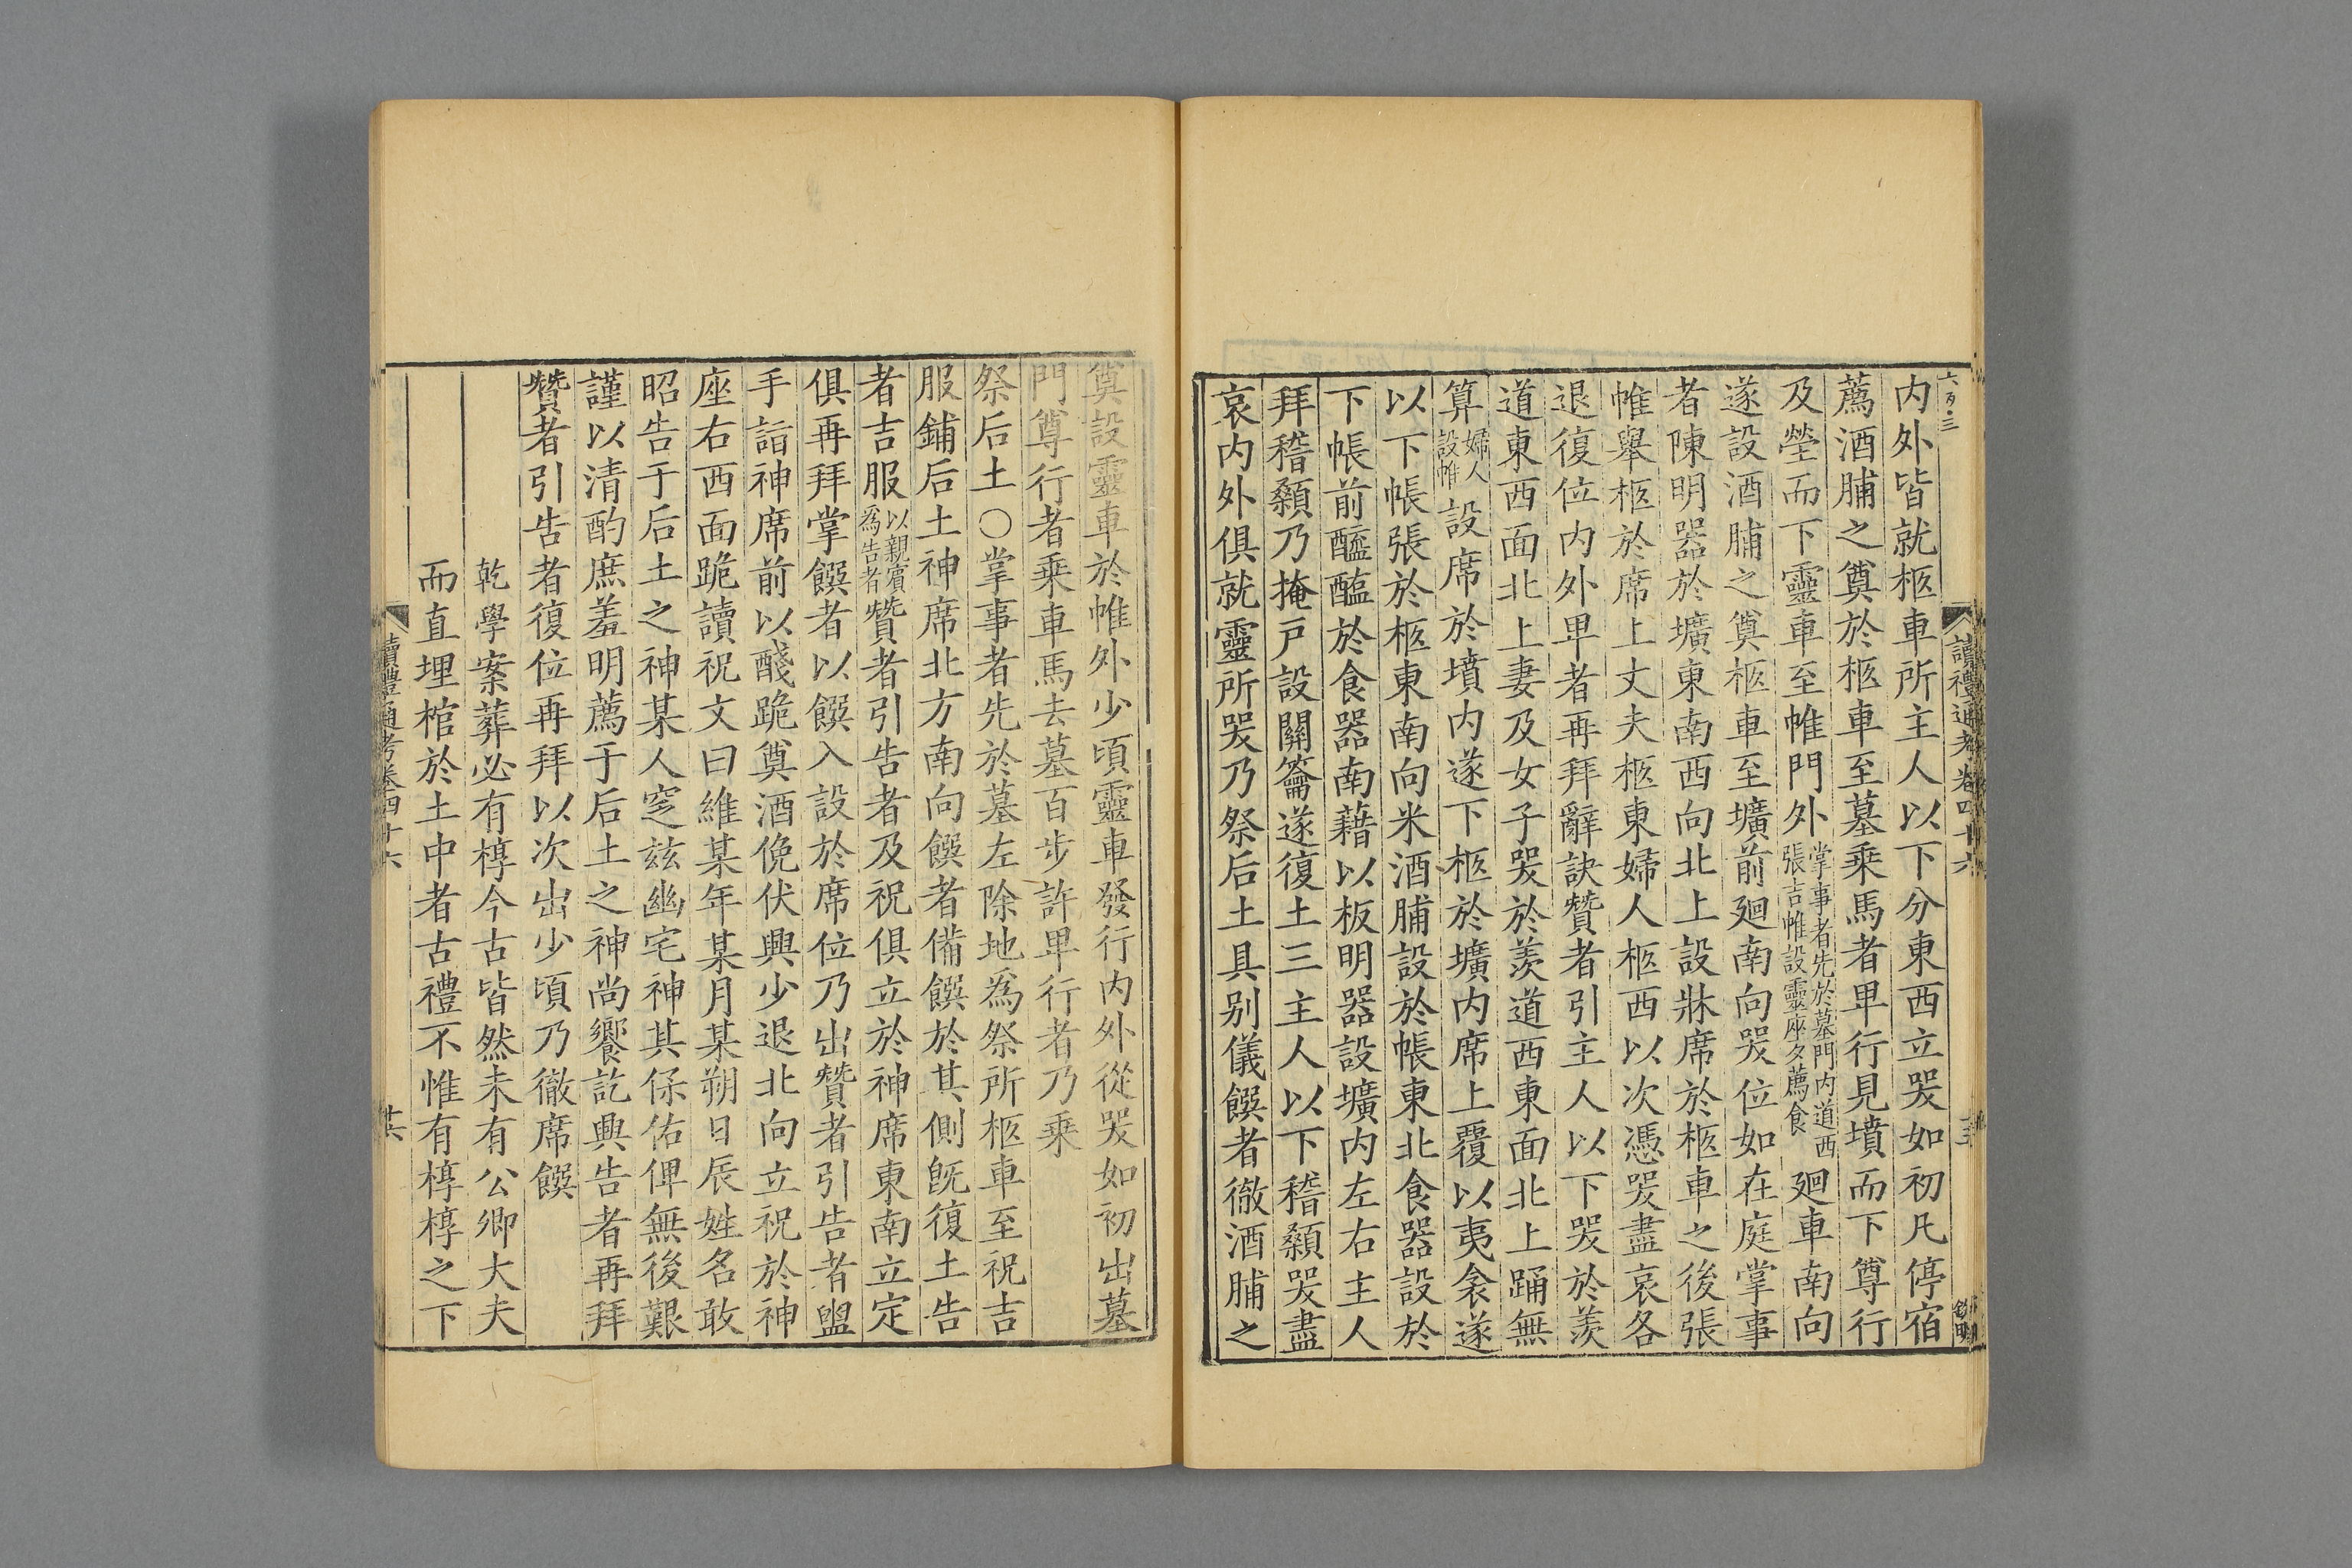 六百·三
讀禮通考卷四十六
内外皆就柩車所主人以下分東西立哭如初凡停宿
薦酒脯之奠於柩車至墓乘馬者卑行見墳而下尊行
及塋而下靈車至帷門外掌事者先於墓門内道西張吉帷設靈座夕薦食廻車南向
遂設酒脯之奠柩車至壙前廻南向哭位如在庭掌事
者陳明器於壙東南西向北上設牀席於柩車之後張
帷舉柩於席上丈夫柩東婦人柩西以次憑哭盡哀各
退復位内外卑者再拜辭訣贊者引主人以下哭於羨
道東西面北上妻及女子哭於羨道西東面北上踊無
算婦人設帷設席於墳内遂下柩於壙内席上覆以夷衾遂
以下帳張於柩東南向米酒脯設於帳東北食器設於
下帳前醯醢於食器南藉以板明器設壙内左右主人
拜稽顙乃掩戸設關籥遂復土三主人以下稽顙哭盡
哀内外俱就靈所哭乃祭后土具别儀饌者徹酒脯之
奠設靈車於帷外少頃靈車發行内外從哭如初出墓
門尊行者乘車馬去墓百步許卑行者乃乘
祭后土○掌事者先於墓左除地為祭所柩車至祝吉
服鋪后土神席北方南向饌者備饌於其側旣復土告
者吉服以親賓為告者贊者引告者及祝俱立於神席東南立定
俱再拜掌饌者以饌入設於席位乃出贊者引告者盥
手詣神席前以醆跪奠酒俛伏興少退北向立祝於神
座右西面跪讀祝文曰維某年某月某朔日辰姓名敢
昭告于后土之神某人窆兹幽宅神其保佑俾無後艱
謹以清酌庶羞明薦于后土之神尚饗訖興告者再拜
贊者引告者復位再拜以次出少頃乃徹席饌
乾學案葬必有椁今古皆然未有公卿大夫
而直埋棺於土中者古禮不惟有椁椁之下
讀禮通考卷四十六
廿六